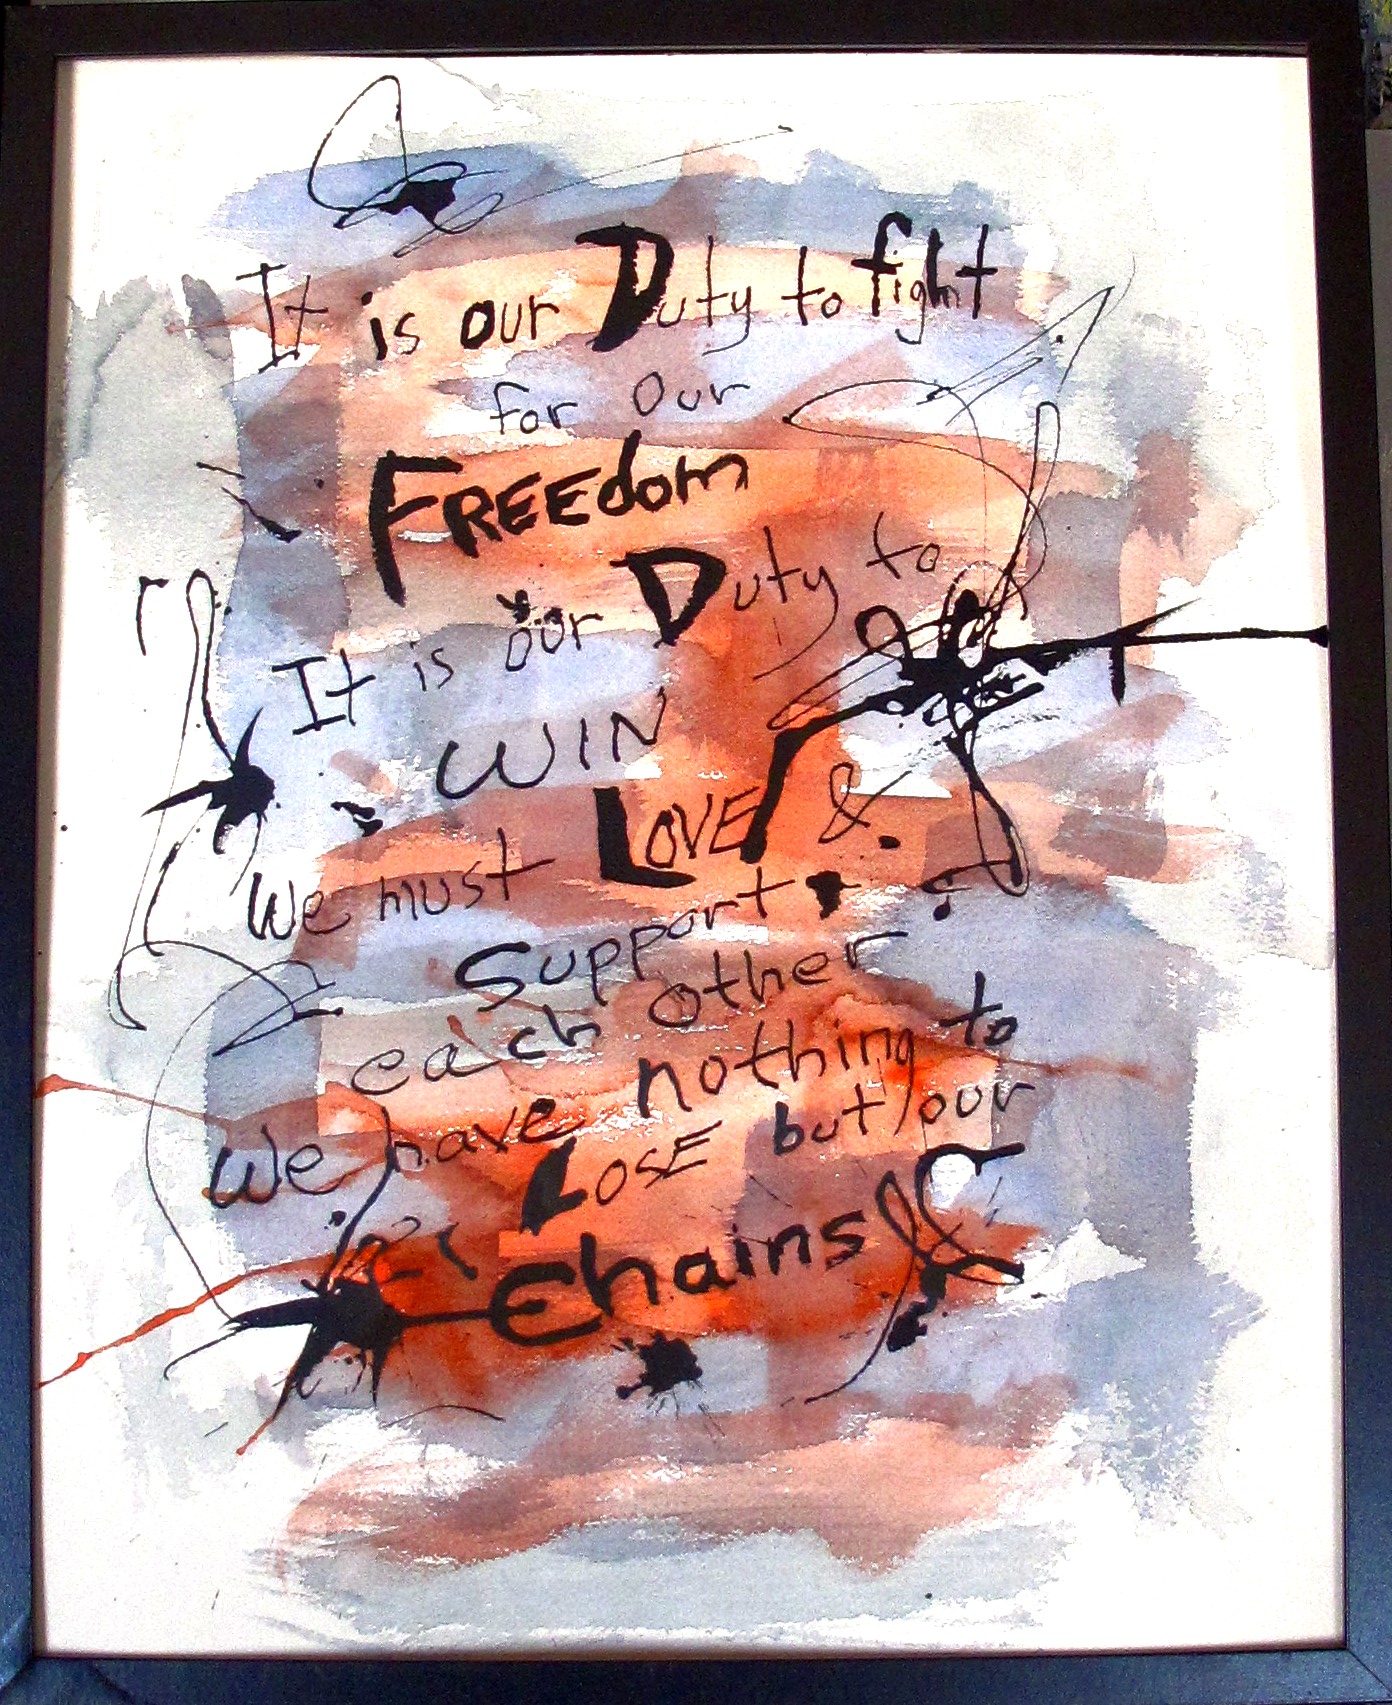 It is our Duty to fight
for our
FREEdom
It is our Duty to
WIN
We must LOVE &
Support
each other
We have nothing to
LOSE but our
Chains